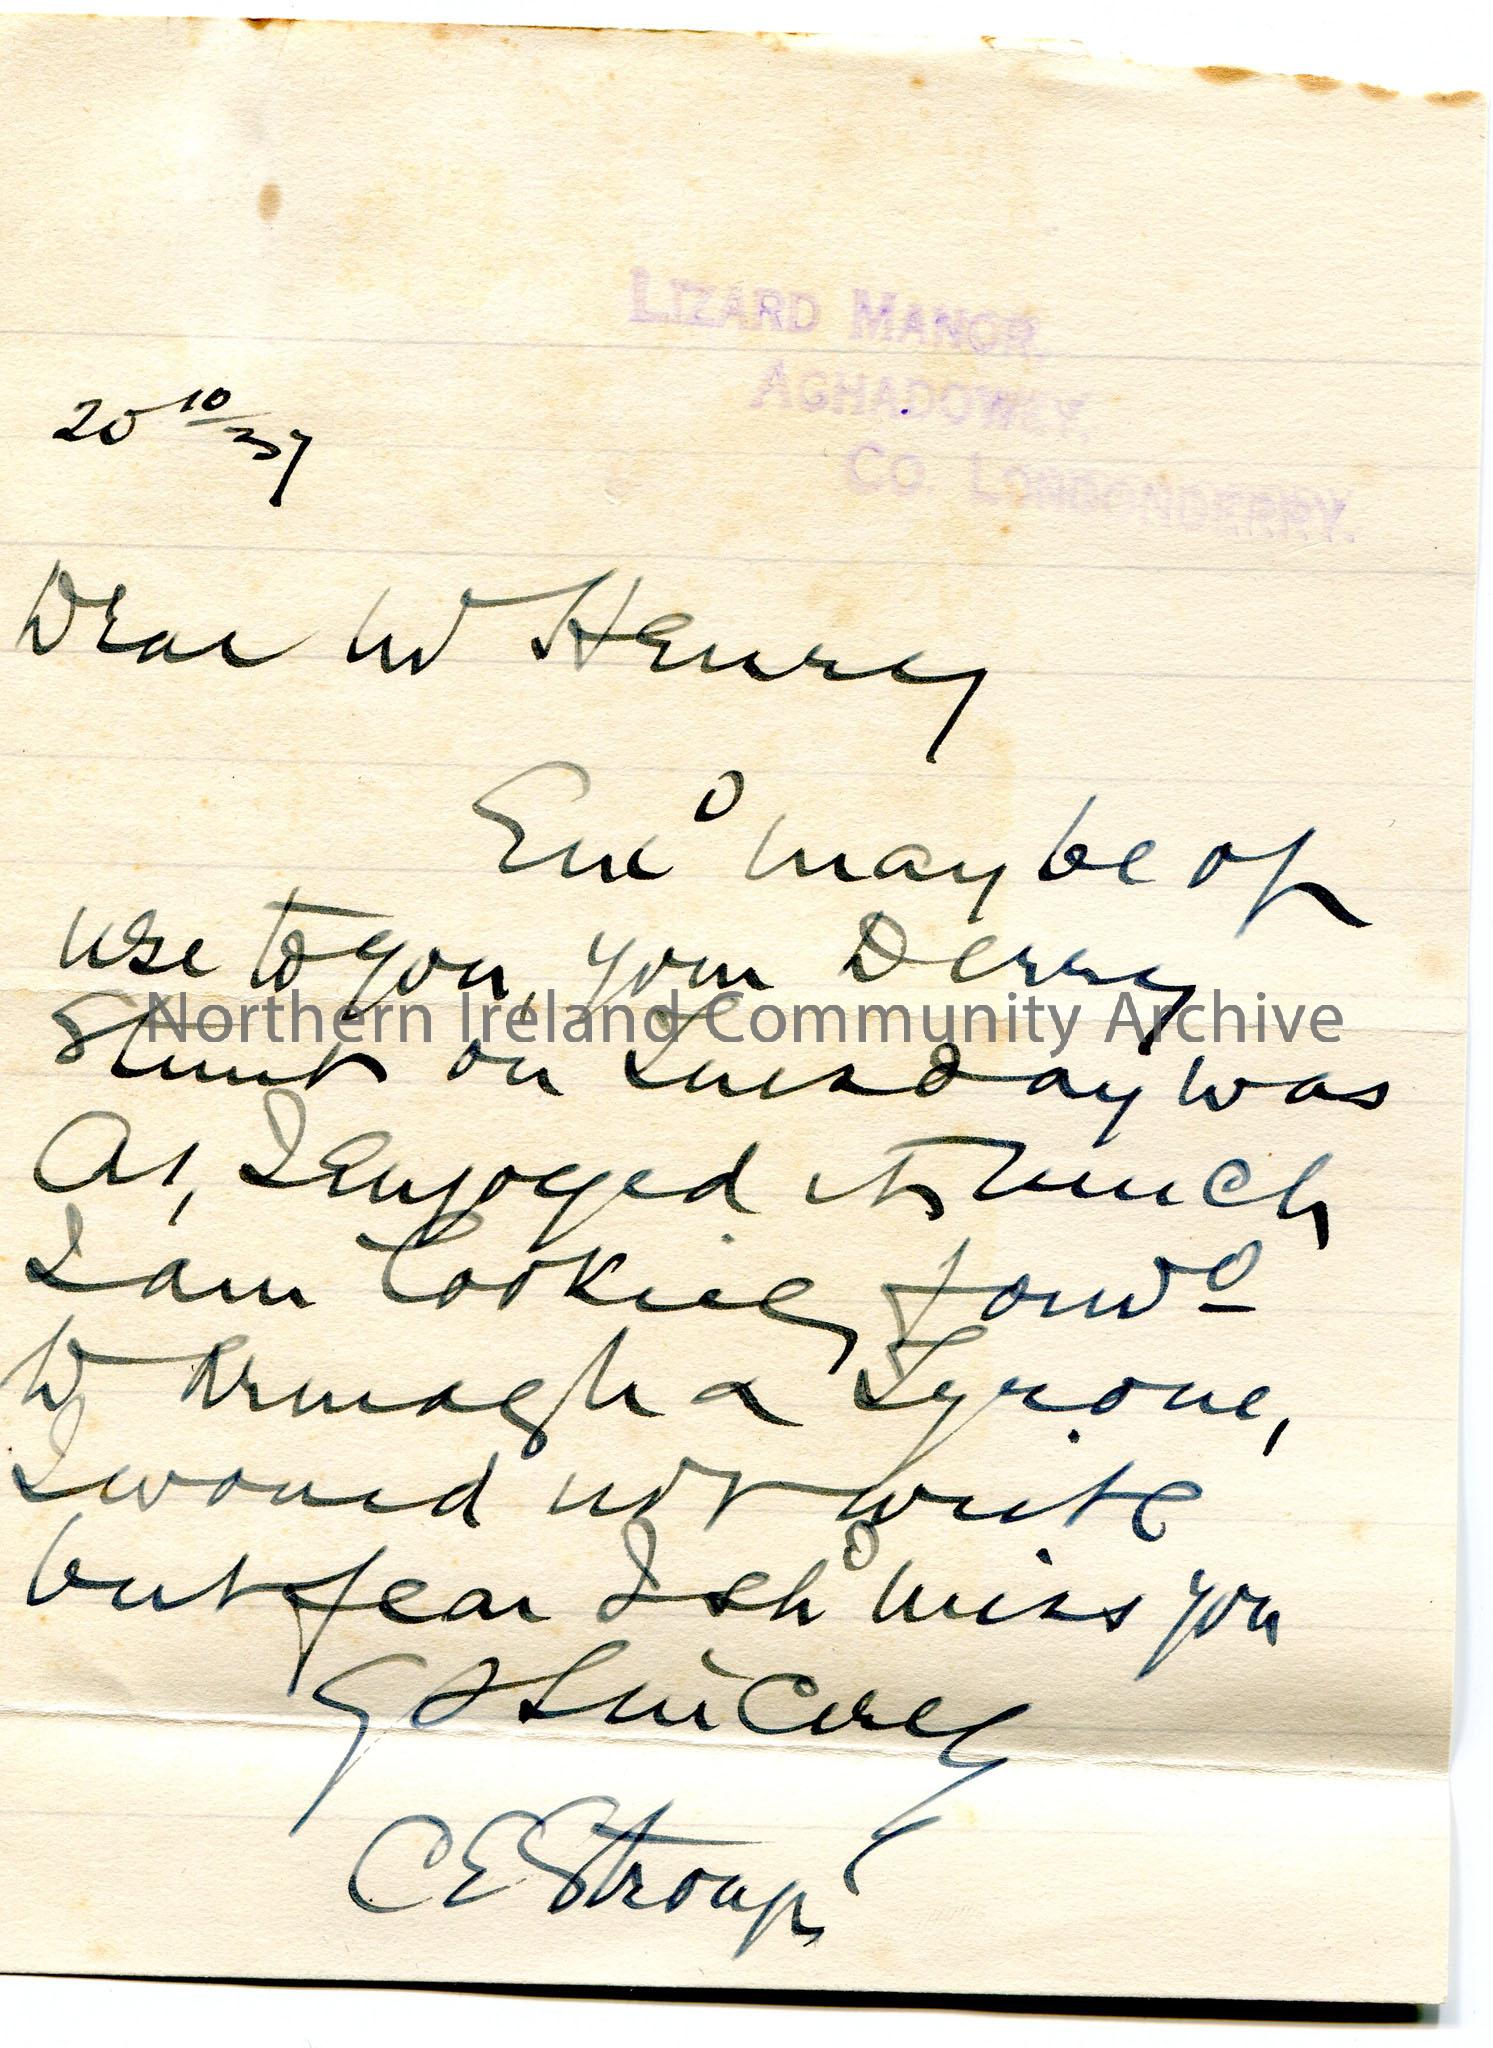 LIZARD MANOR.
AGHADOWEY.
CO. LONDONDERRY.
20 10/37
Dear Mr Henry
Encd may be of
use to you, your Derry
Stunt on Tuesday was
A1, I enjoyed it much
I am looking forwd
to Armagh & Tyrone,
I would not write
but fear I shd miss you
Yrs Sincerely
C E Stroup
Northern Ireland Community Archive